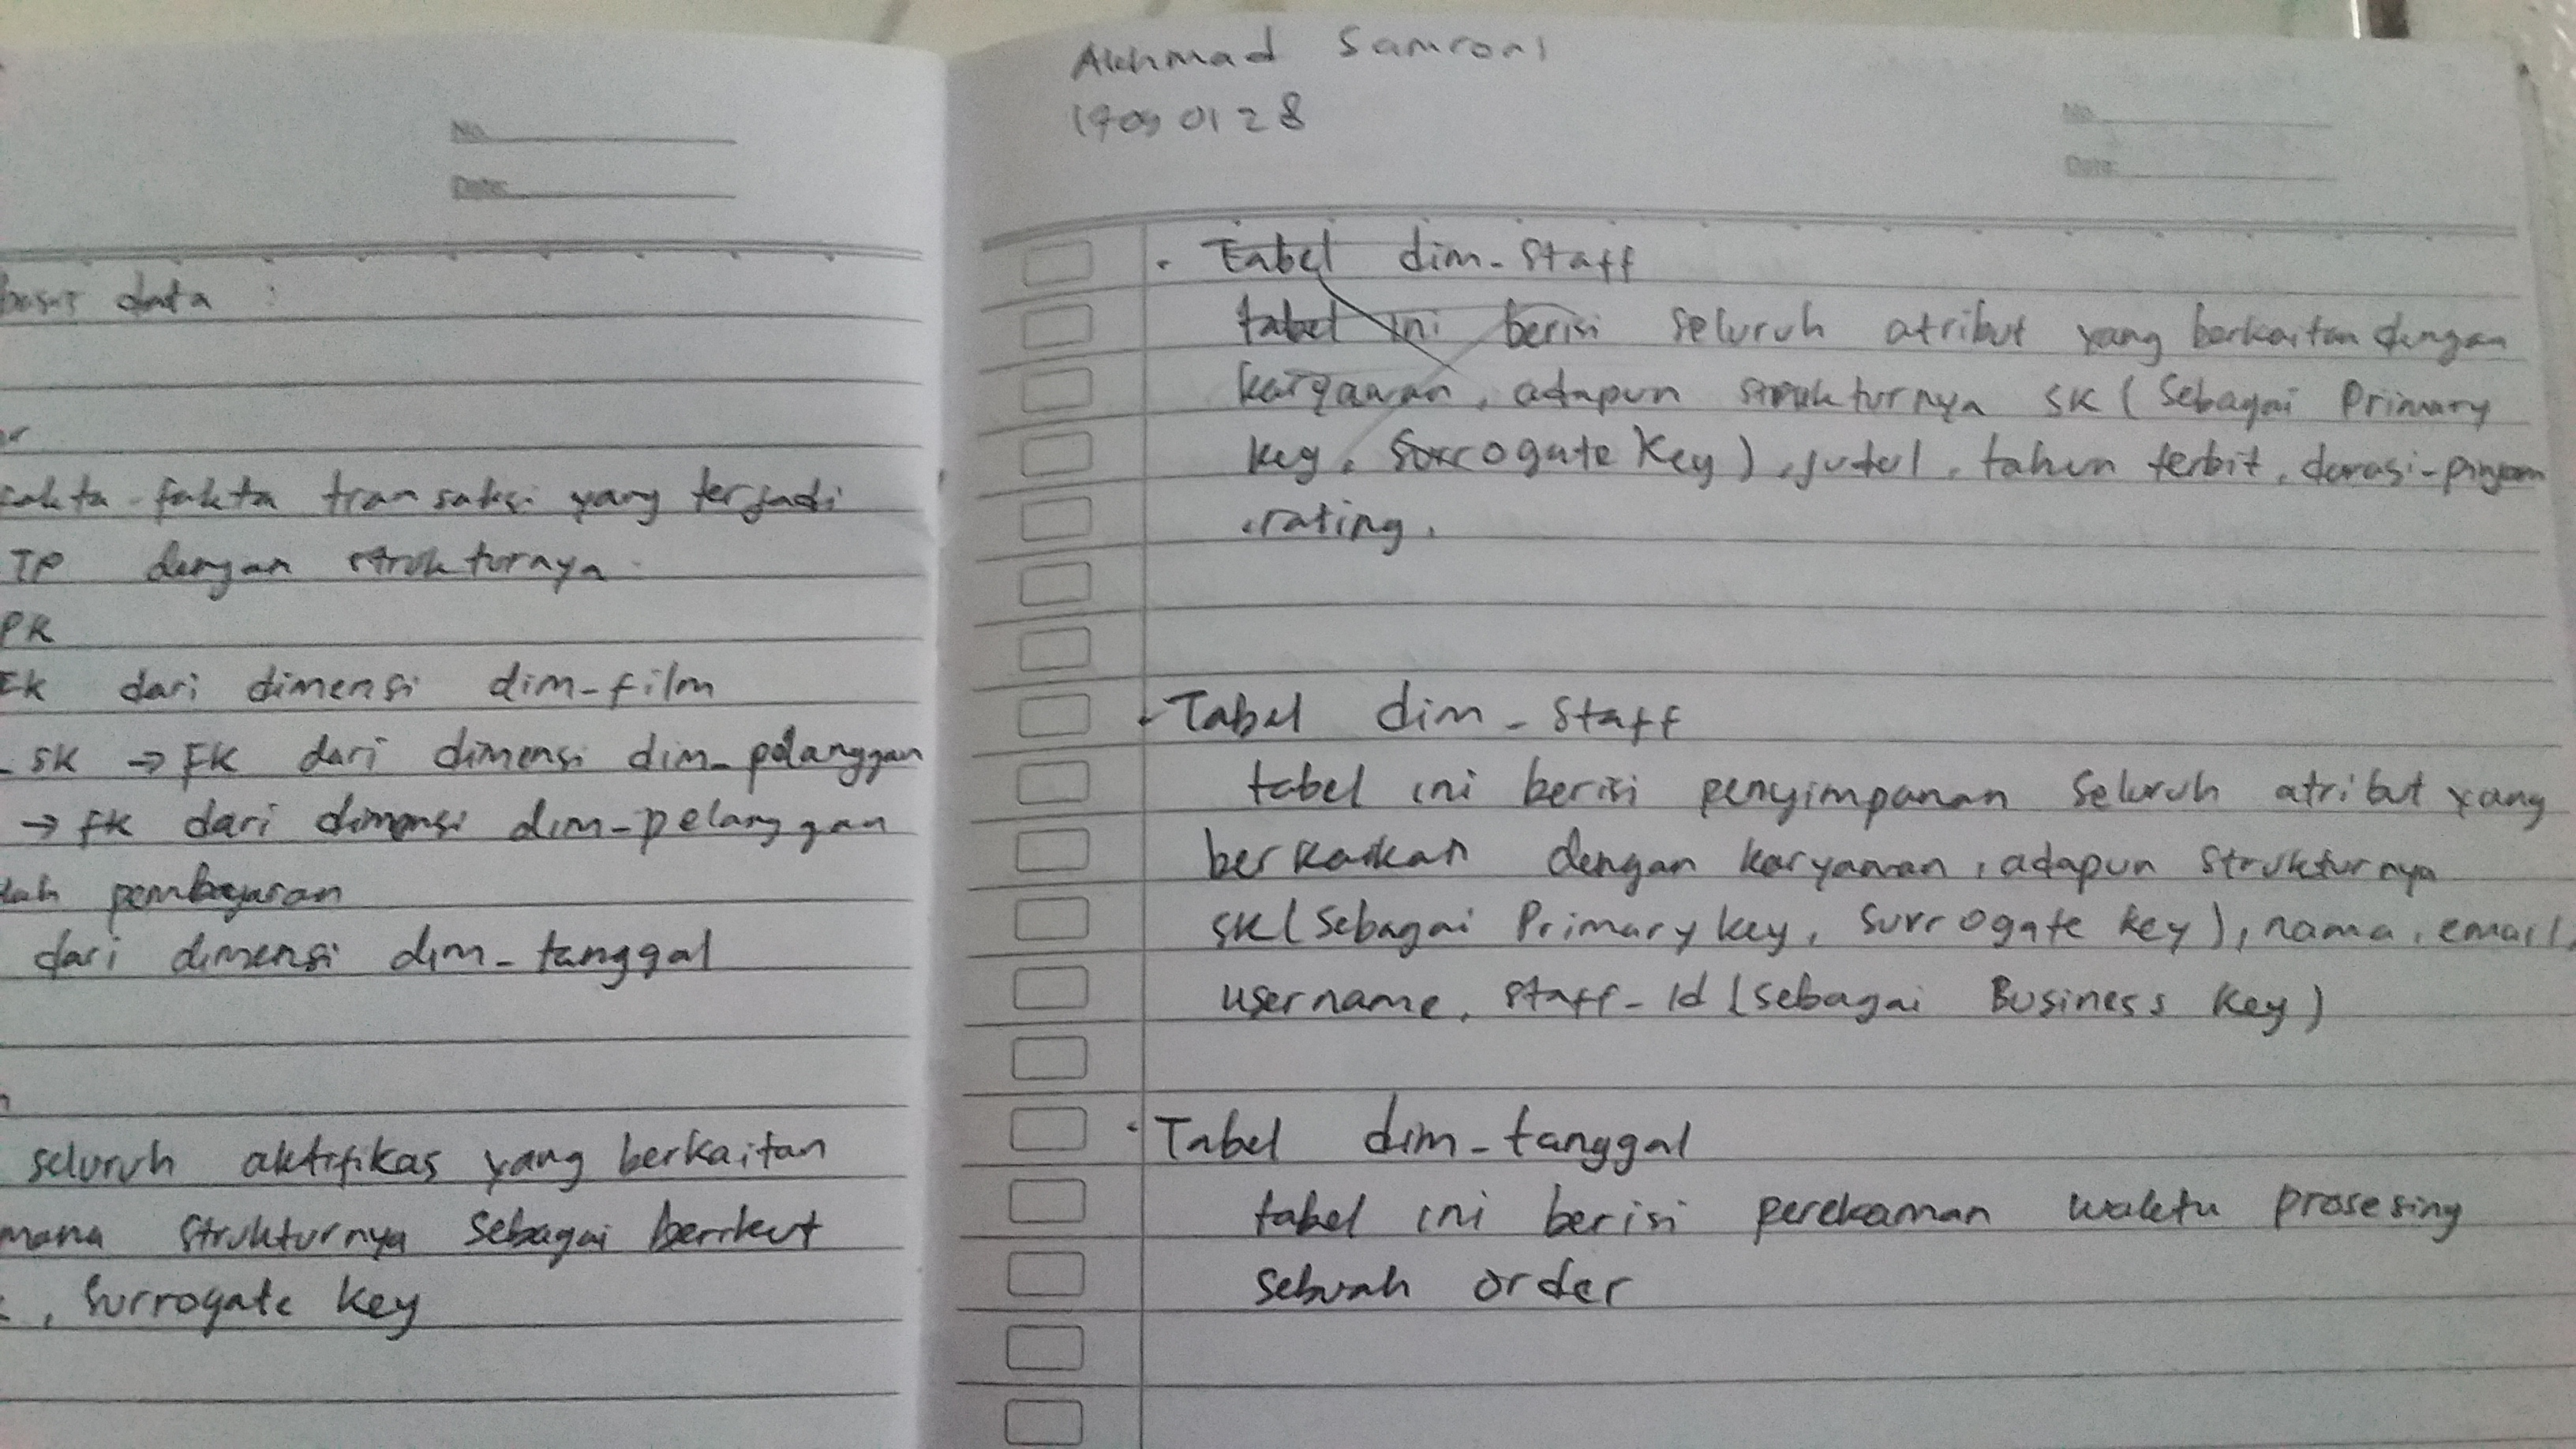 No.
Date
basis data :
fakta-fakta transaksi yang terjadi
TP dengan strukturnya
PK
FK dari dimensi dim-film
- SK → FK dari dimensi dim-pelanggan
→ FK dari dimensi dim-pelanggan
lah pembayaran
dari dimensi dim-tanggal
seluruh aktifitas yang berkaitan
mana strukturnya sebagai berikut
, Surrogate key
Akhmad Samroni
1909 0128
No.
Date
• Tabel dim-staff
tabel ini berisi seluruh atribut yang berkaitan dengan
karyawan, adapun strukturnya SK (Sebagai Primary
key, Surrogate Key), judul, tahun terbit, durasi-pinjam
, rating.
• Tabel dim-staff
tabel ini berisi penyimpanan seluruh atribut yang
berkaitan dengan karyawan, adapun strukturnya
SK (Sebagai Primary key, Surrogate key), nama, email,
username, staff-id (sebagai Business key)
• Tabel dim-tanggal
tabel ini berisi perekaman waktu prosesing
sebuah order